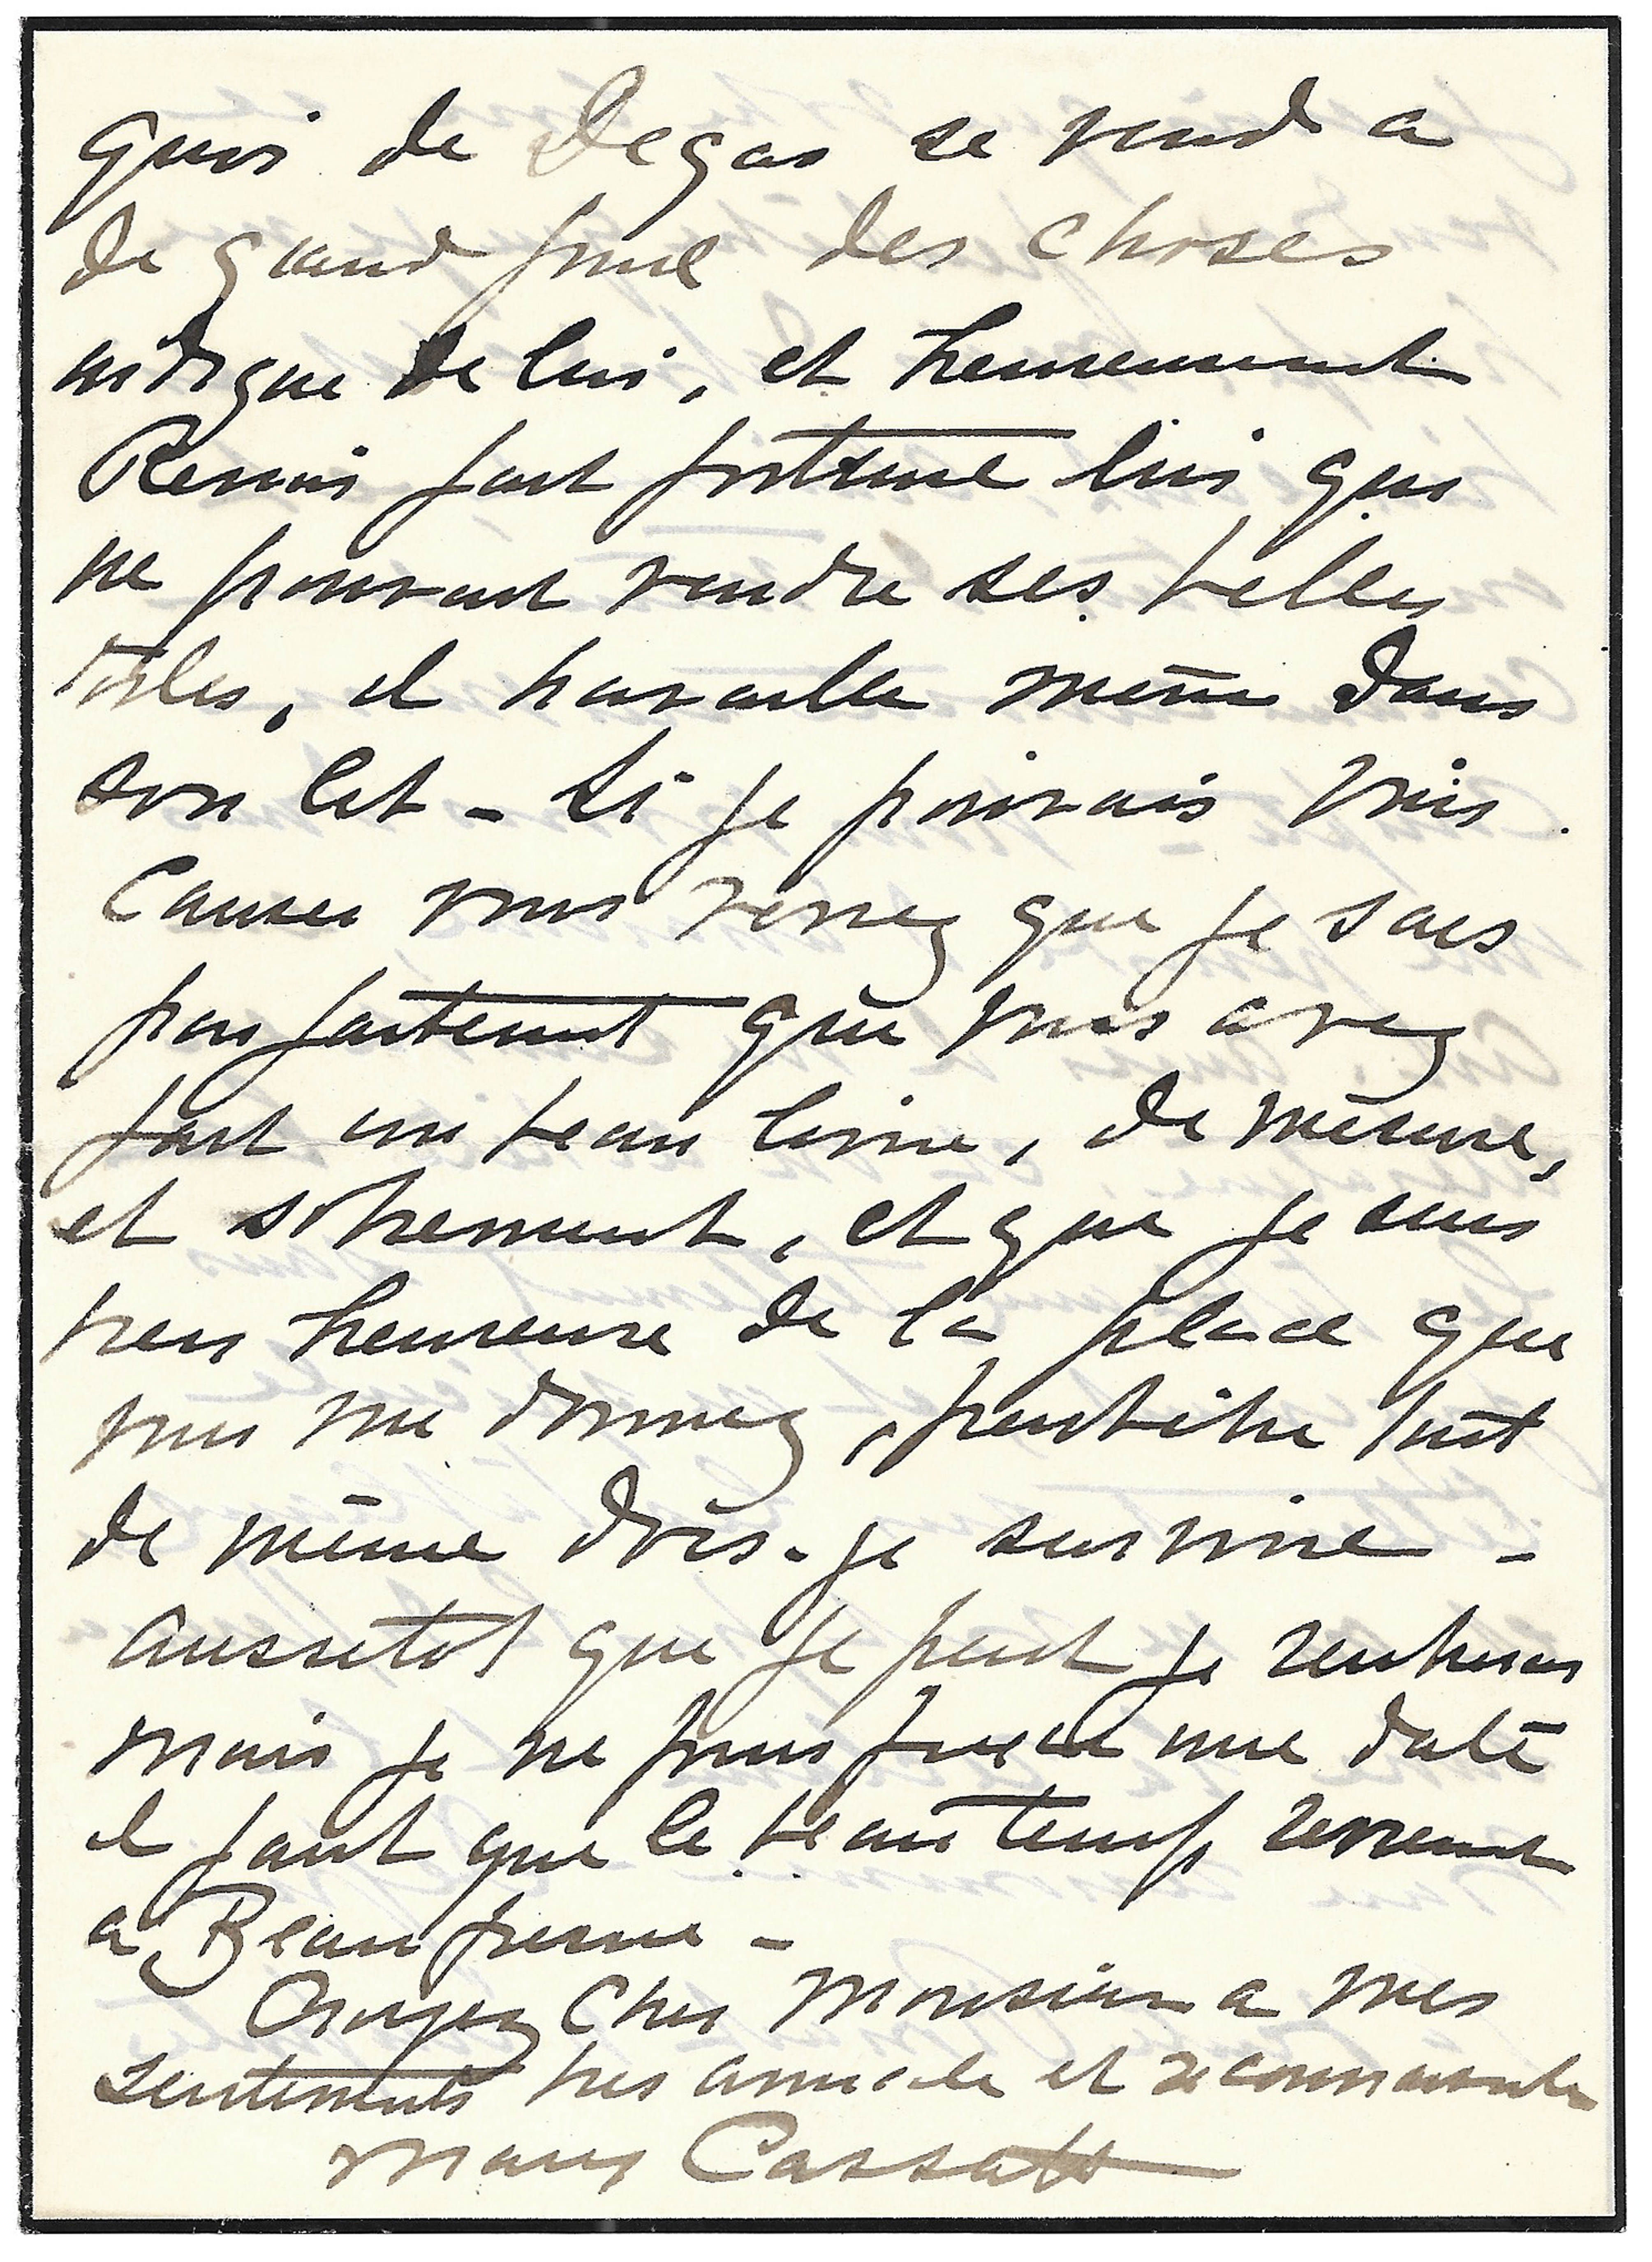 quoi de Degas se vend a
de grand prix des choses
indigne de lui, et heureusement
Renoir fait fortune lui qui
ne pouvait vendre ses belles
toiles, il travaille même dans
son lit - Si je pouvais vous
Causer vous verrez que je sais
parfaitement que vous avez
fait un beau livre, de mesure,
et sobrement, et que je suis
tres heureuse de la place que
vous me donnez, peutêtre tout
de même dois-je survivre -
Aussitot que je peut je rentrerai
mais je ne puis fixer une date
il faut que le beau temps revient
a Beaufresne -
Croyez Cher Monsieur a mes
sentiments tres amicale et reconnaissante
Mary Cassatt